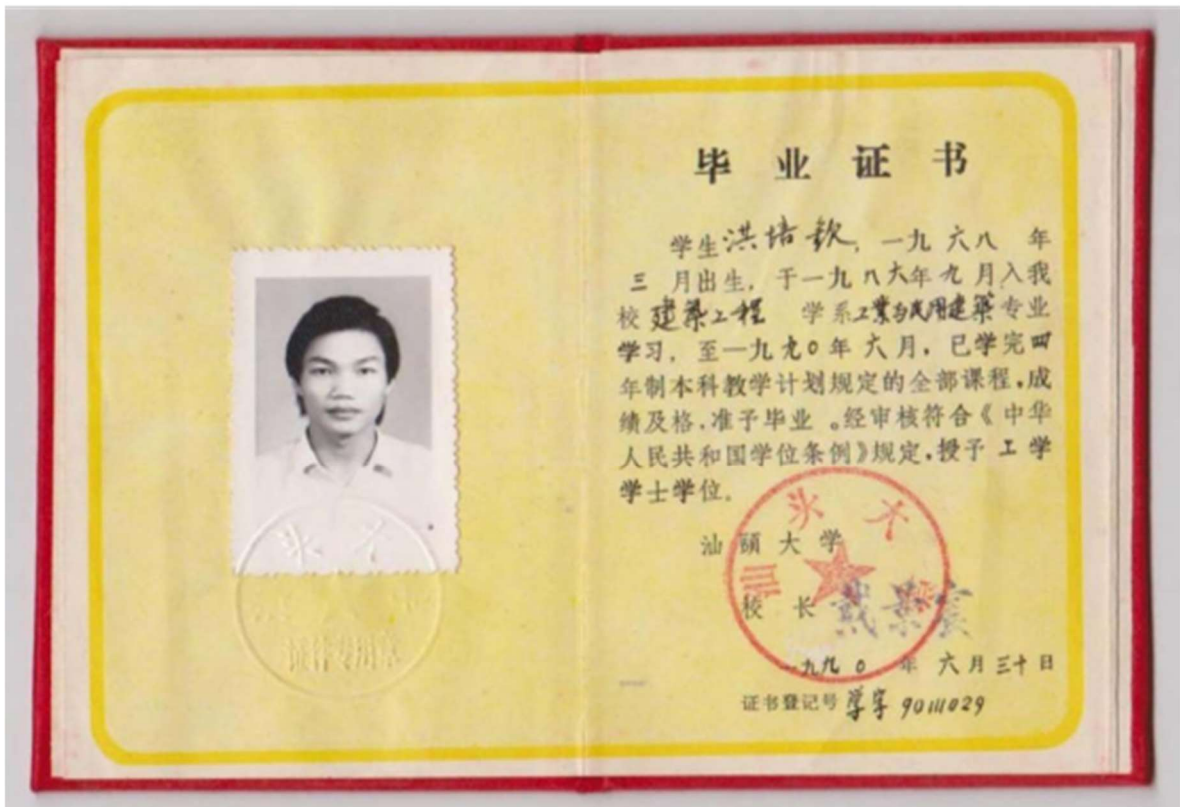 毕业证书
学生洪培钦，一九六八 年
三 月出生，于一九八六年九月入我
校建築工程 学系工業与民用建築专业
学习，至一九九0年六月，已学完四
年制本科教学计划规定的全部课程，成
绩及格，准予毕业。经审核符合《中华
人民共和国学位条例》规定，授予 工学
学士学位。
汕頭大学
校 长
一九九0 年 六月三十日
证书登记号 学字 9011029
汕头大学
证件专用章